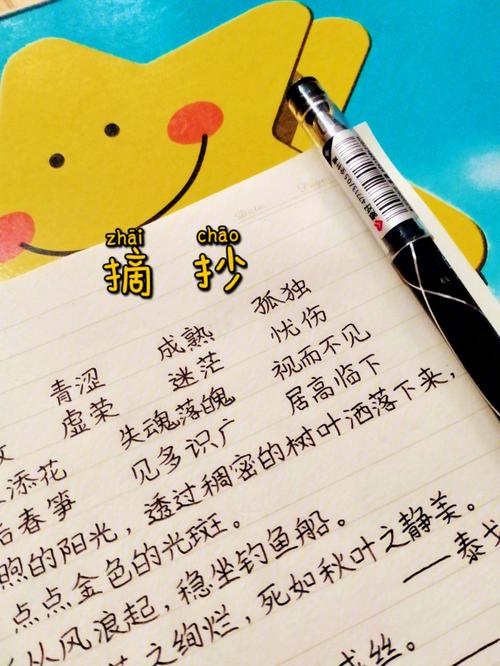 zhāi chāo
摘 抄
青涩 成熟 孤独
虚荣 迷茫 忧伤
添花 失魂落魄 视而不见
后春笋 见多识广 居高临下
煦的阳光，透过稠密的树叶洒落下来，
点点金色的光斑。
从风浪起，稳坐钓鱼船。
之绚烂，死如秋叶之静美。
——泰戈
成丝。